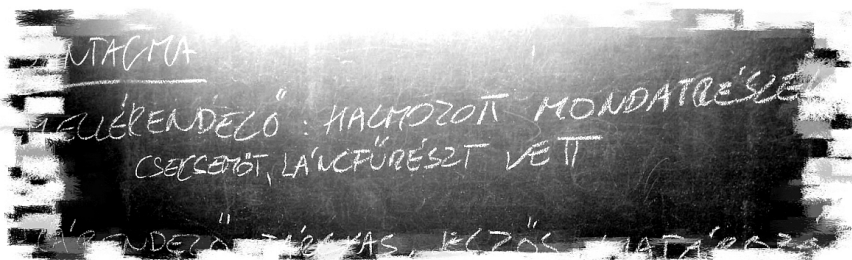 SZINTAGMA
MELLÉRENDELŐ : HALMOZOTT MONDATRÉSZEK
CSECSEMŐT, LÁNCFŰRÉSZT VETT
ALÁRENDELŐ TÁRGYAS, JELZŐS, HATÁROZÓS